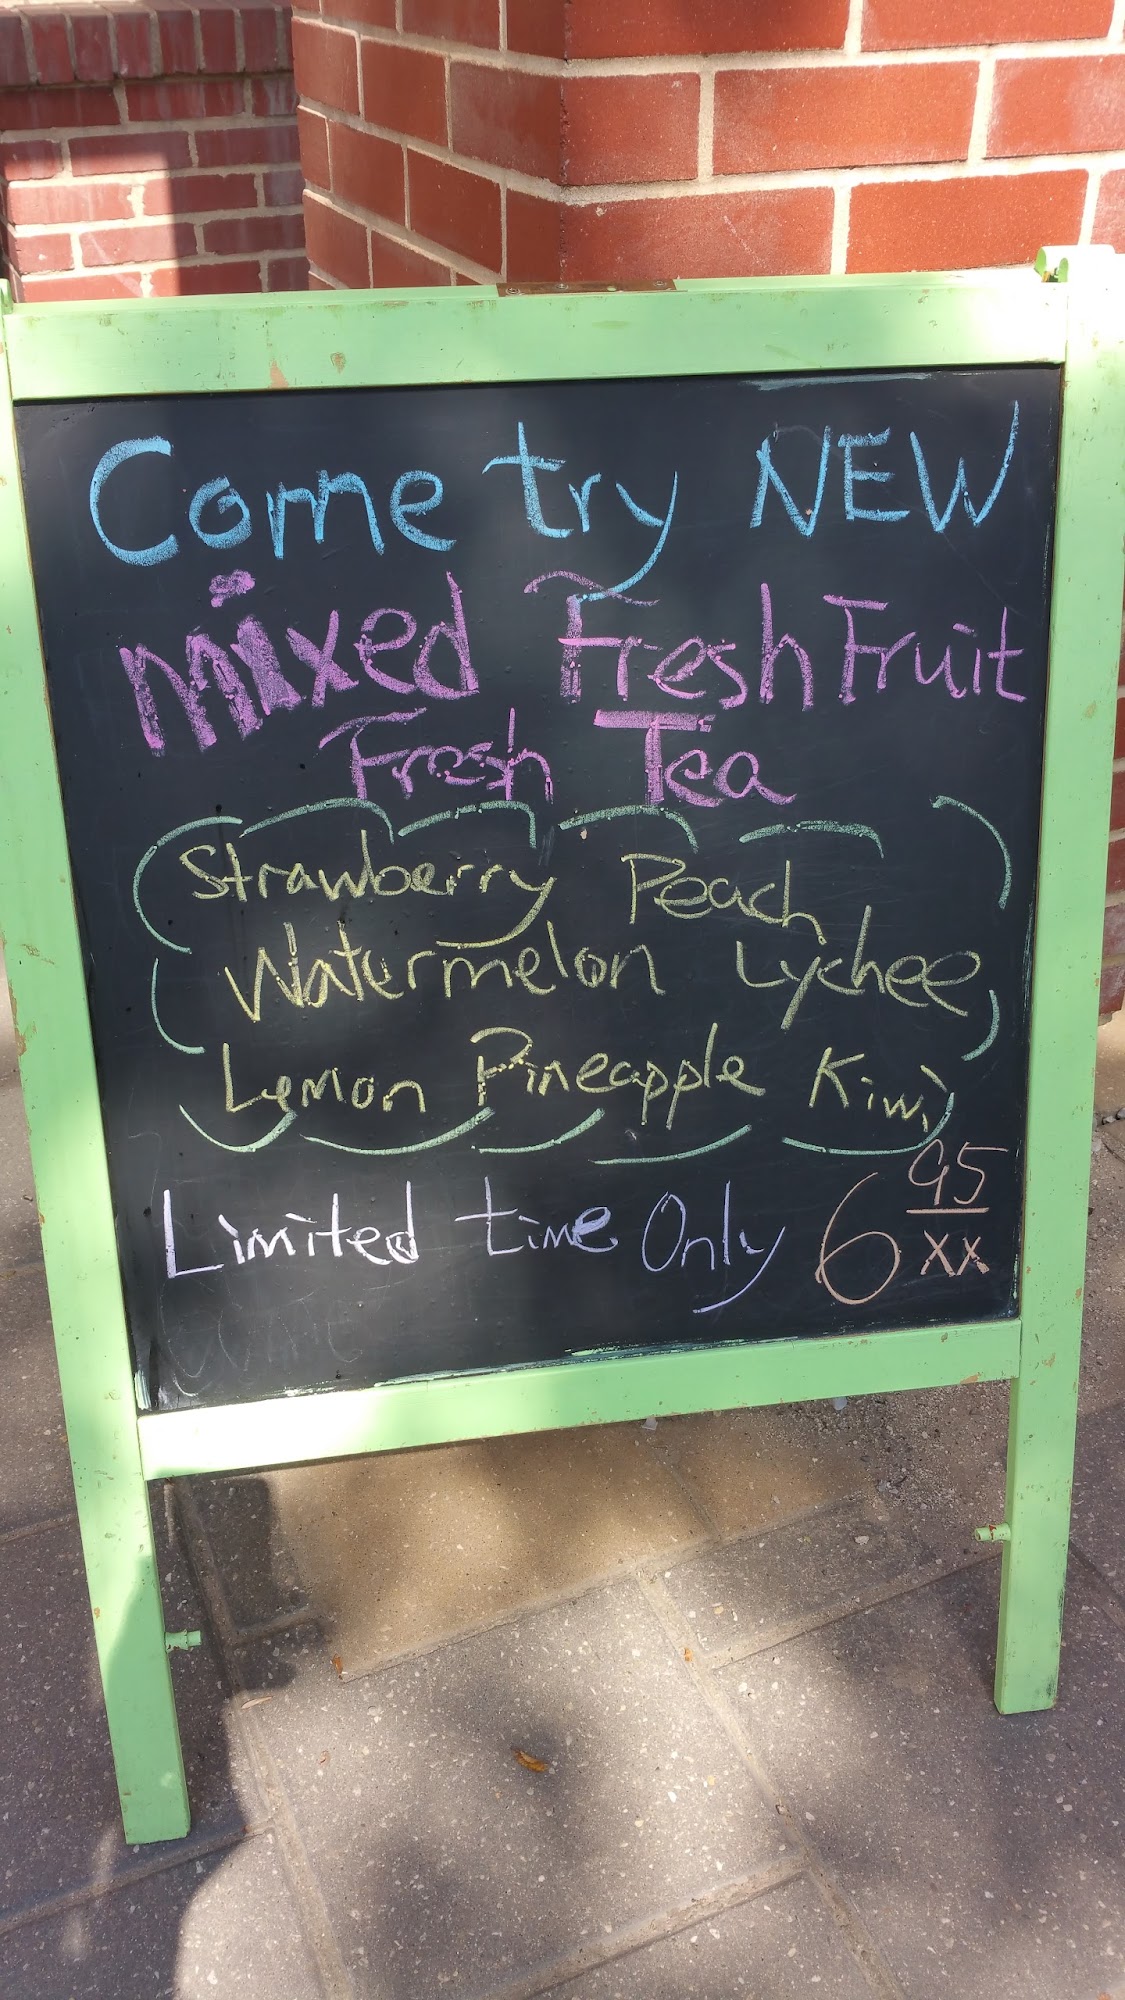 Come try NEW
mixed Fresh Fruit
Fresh Tea
Strawberry Peach
Watermelon Lychee
Lemon Pineapple Kiwi
Limited time Only 6 95/xx